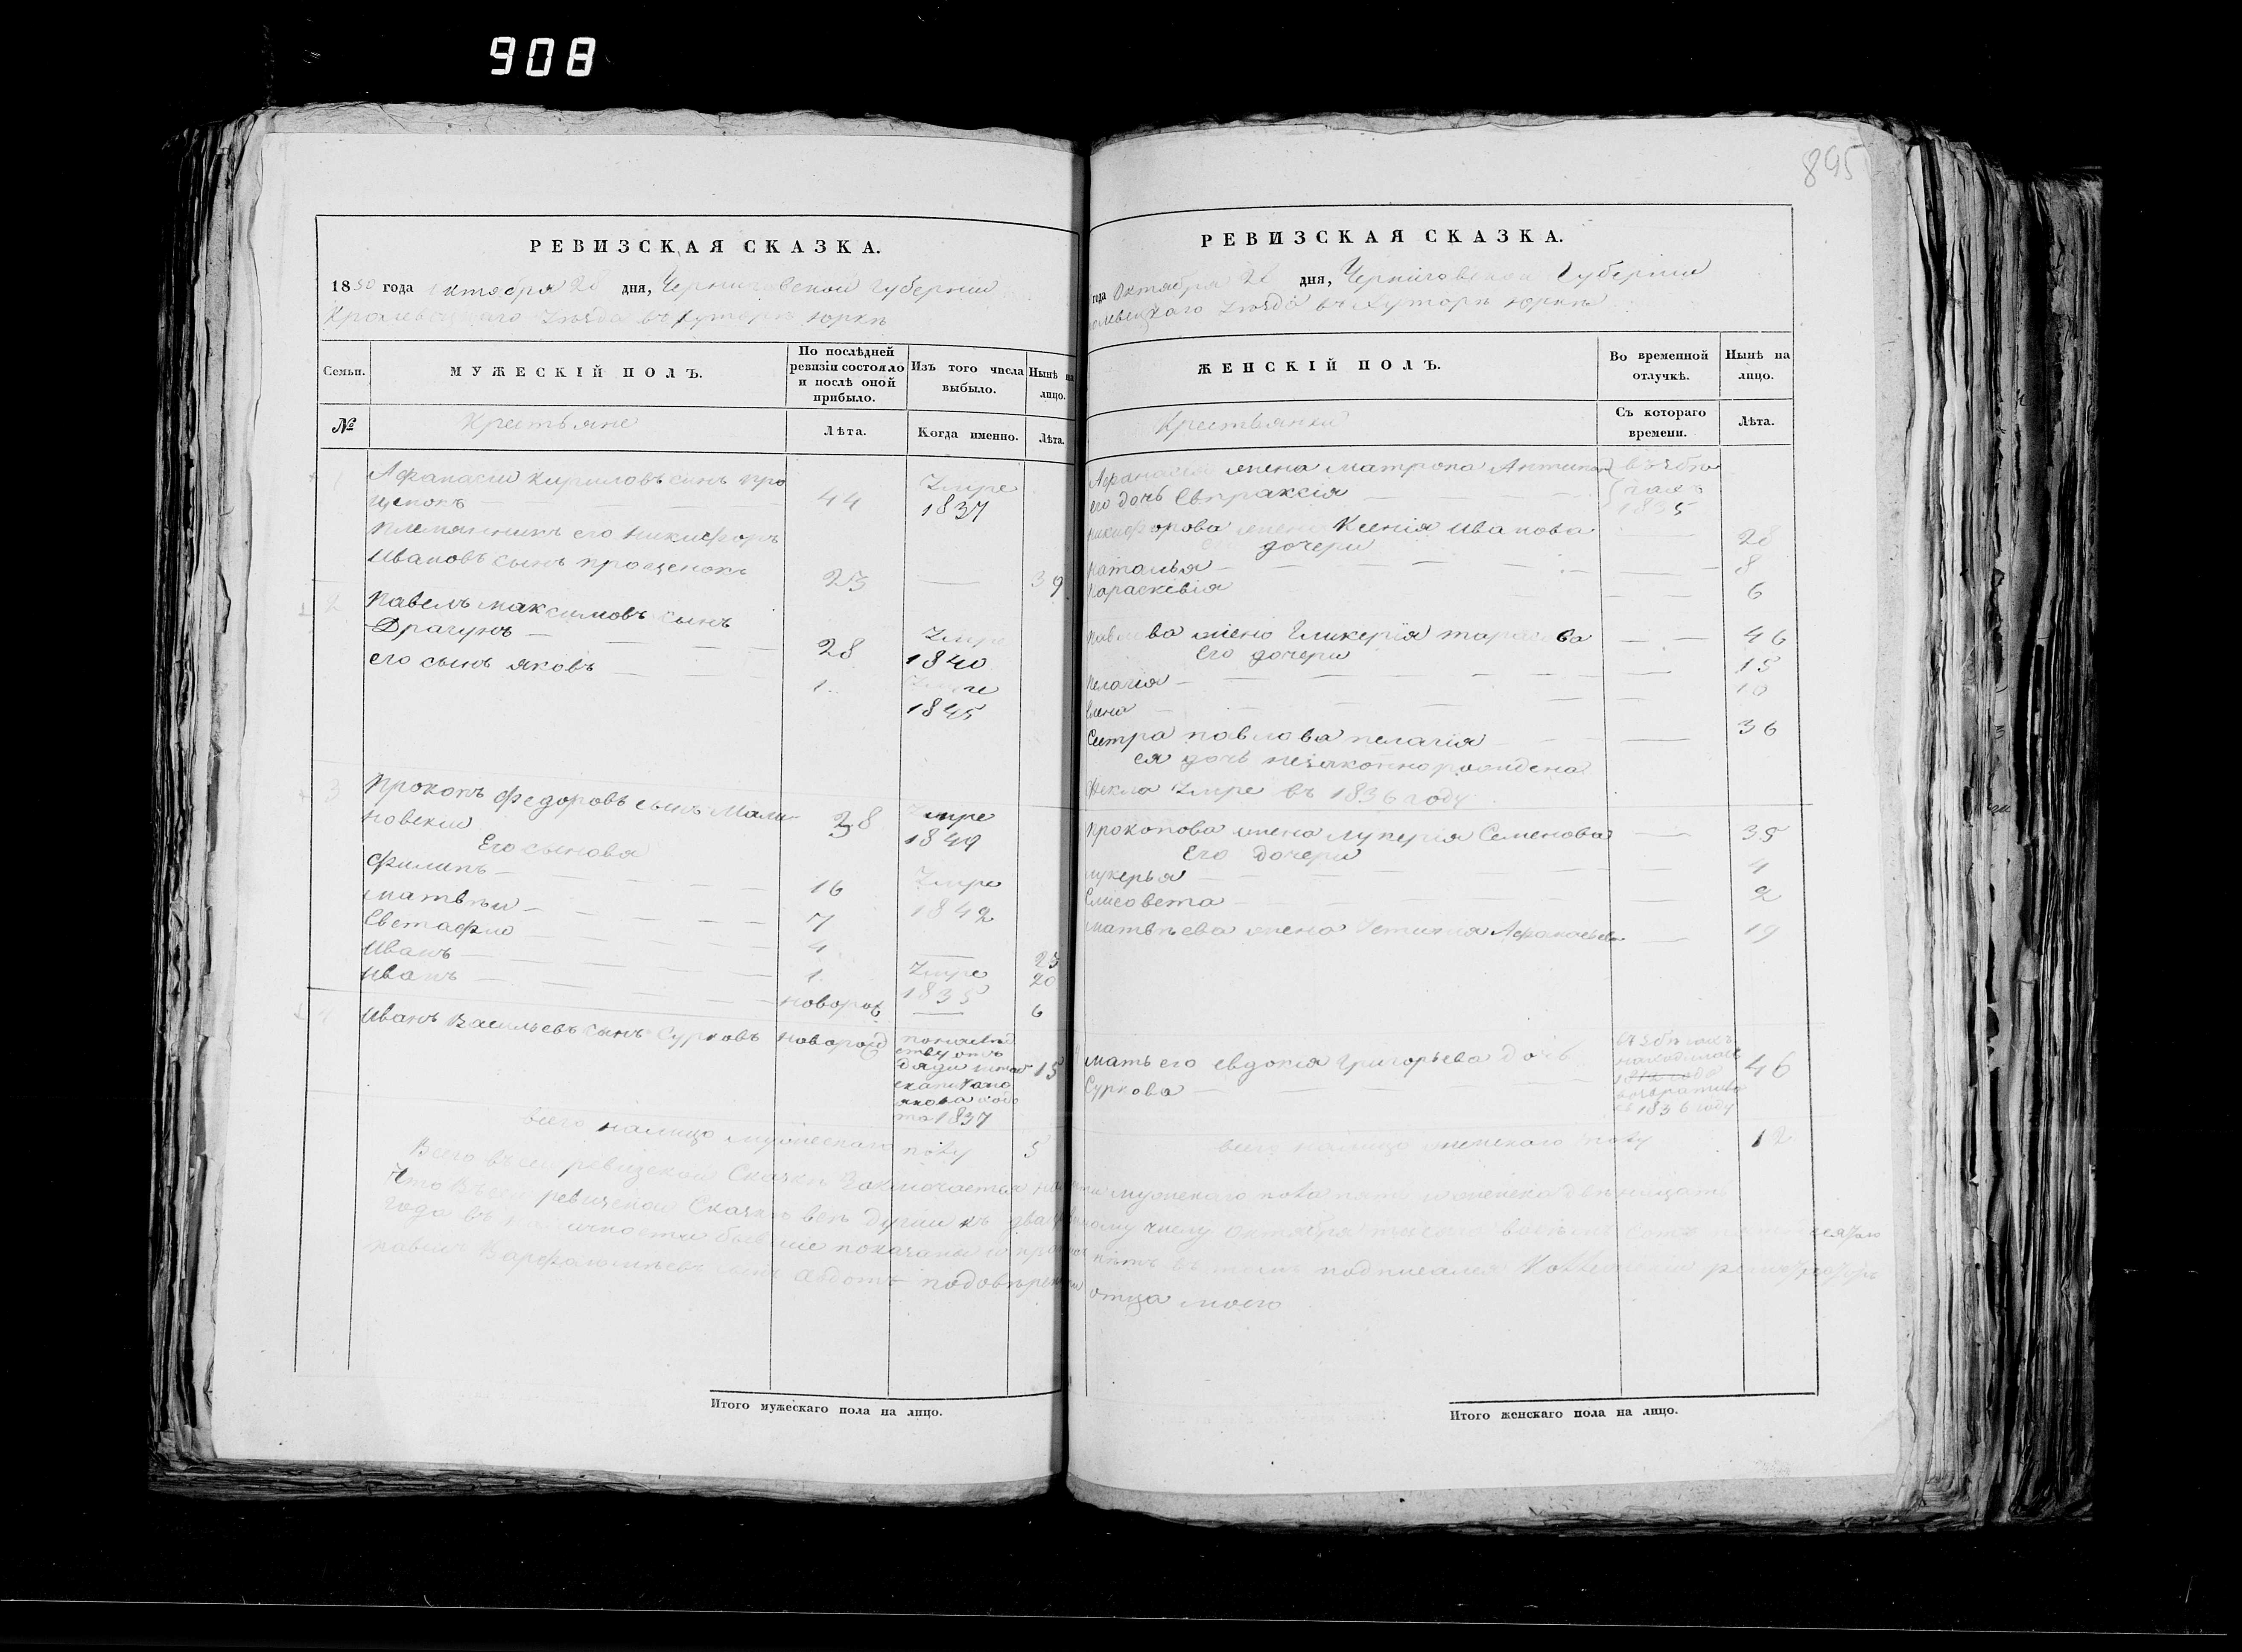 908
895
РЕВИЗСКАЯ СКАЗКА.
1850 года октября 20 дня, Черниговской губерніи
Кролевецкаго уезда въ хуторе Юрке
Семьи.
МУЖЕСКІЙ ПОЛЪ.
По послѣдней ревизіи состояло и послѣ оной прибыло.
Изъ того числа выбыло.
Нынѣ на лицо.
№
Крестьяне
Лѣта.
Когда именно.
Лѣта.
1 Афанасий Кириловъ сынъ Про
ценокъ 44 Умре 1837
Племянникъ его Никифоръ
Ивановъ сынъ Проценокъ 23 — 39
2 Павелъ Максимовъ сынъ
Драгунъ 28 Умре 1840
его сынъ Яковъ 1 Умре 1845
3 Прокопъ Федоровъ сынъ Мали
новский 38 Умре 1849
Его сыновя
Филипъ 16 Умре 1842
Матвѣй 7 — 23
Евстафий 4 20
Иванъ 1 Умре 1835
Иванъ новорож — 6
4 Иванъ Васильевъ сынъ Сурковъ новорожд
1837 15
всего налицо мужескаго полу 5
РЕВИЗСКАЯ СКАЗКА.
года Октября дня, Черниговской Губерніи
уезда въ Хуторе Юрке
ЖЕНСКІЙ ПОЛЪ.
Во временной отлучкѣ.
Нынѣ на лицо.
Крестьянки
Съ котораго времени.
Лѣта.
Афанасия жена Матрона Антипова
его дочь Евпраксія 1835
Никифорова жена Ксенія Иванова 28
дочери
Наталья 8
Параскевія 6
Павлова жена Гликерія Тарасова 46
Его дочери
Пелагія 15
Елена 10
Сестра Павлова Пелагія 36
ея дочь незаконнорождена
Фекла Умре въ 1836 году
Прокопова жена Лукерія Семенова 35
Его дочери
Лукерья 4
Елисовета 2
Матвѣева жена Устинія Афанасьева 19
Мать его Евдокія Григорьева дочь
Суркова 46
въ бѣгахъ
находилась
возвратилась
въ 1836 году
всего налицо женскаго полу 12
Всего въ сей ревизской Сказке Заключается мужескаго пола пять и женска двѣнацать
Что въ сей ревизской Сказке все души къ числу Октября тысяча восемь сотъ
года въ наличности бывшие показаны и въ томъ подписался регистраторъ
Павелъ Варфаломеевъ сынъ отца моего
Итого мужескаго пола на лицо.
Итого женскаго пола на лицо.